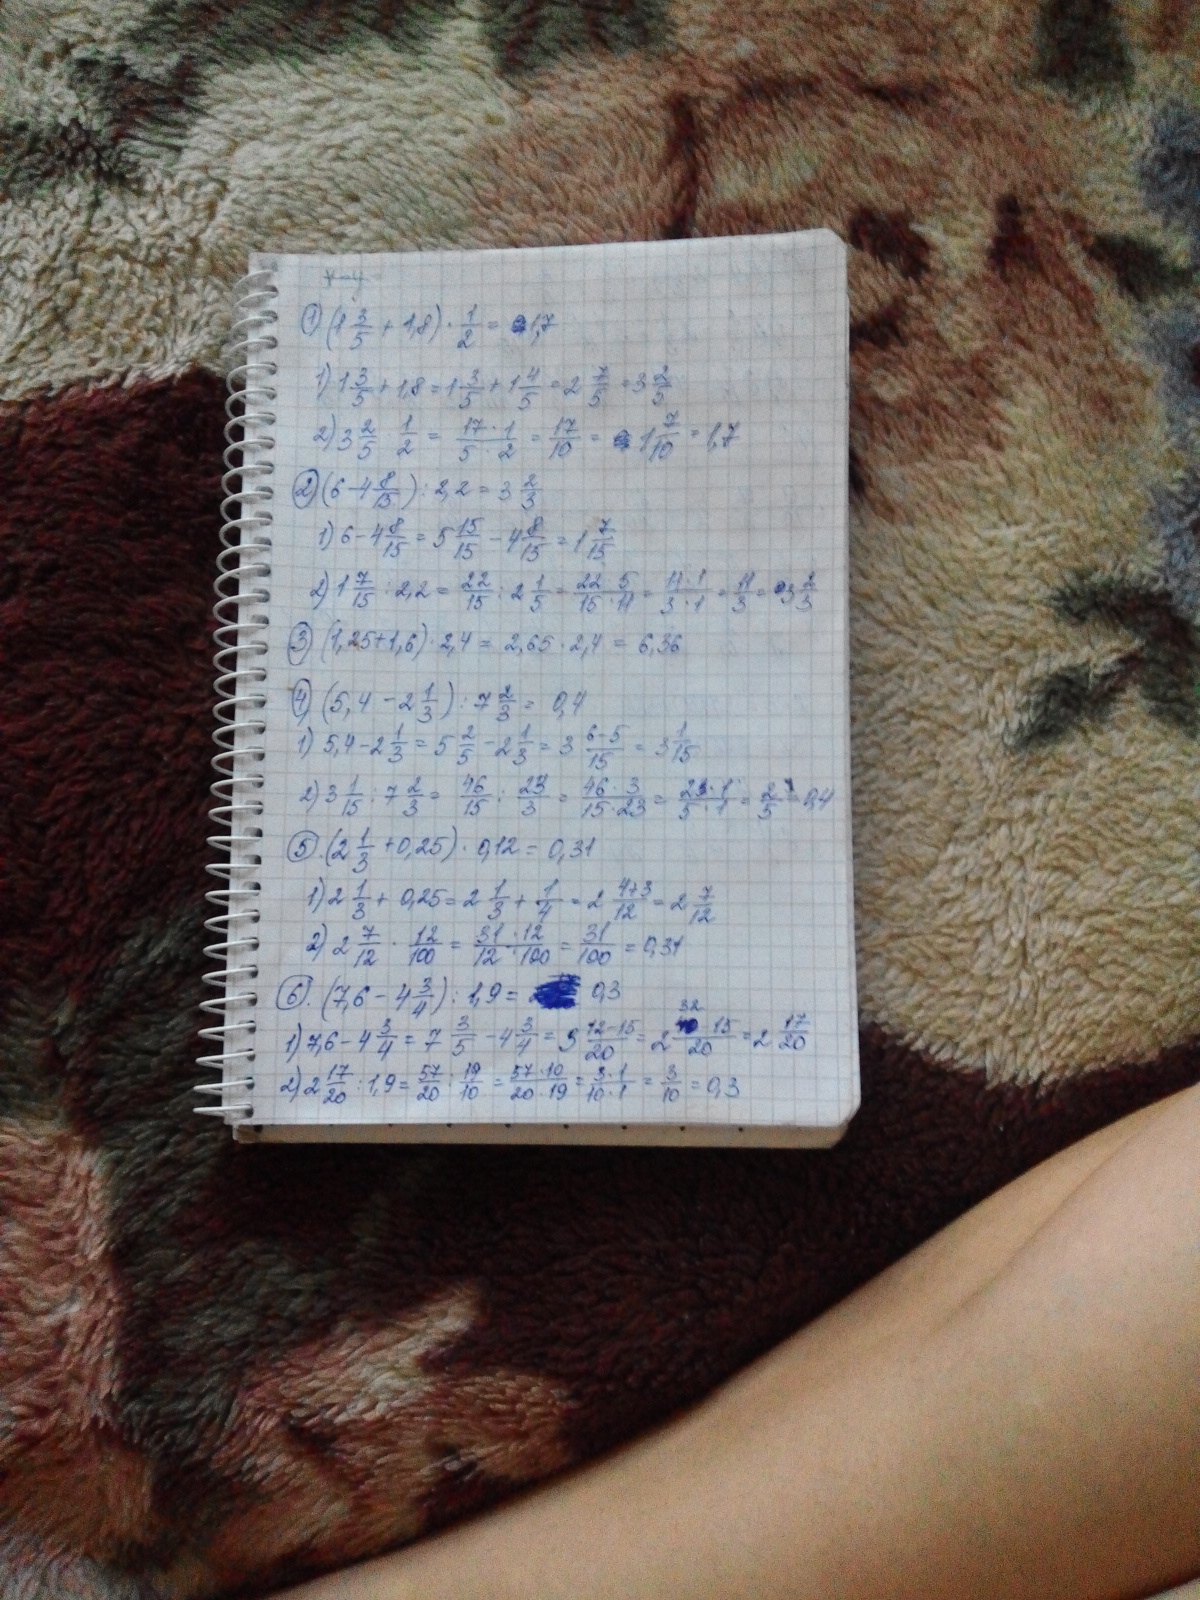 ① (1 3/5 + 1,8) · 1/2 = 1,7
1) 1 3/5 + 1,8 = 1 3/5 + 1 4/5 = 2 7/5 = 3 2/5
2) 3 2/5 · 1/2 = 17·1/5·2 = 17/10 = 1 7/10 = 1,7
② (6 - 4 8/15) : 2,2 = 3 2/3
1) 6 - 4 8/15 = 5 15/15 - 4 8/15 = 1 7/15
2) 1 7/15 : 2,2 = 22/15 : 2 1/5 = 22·5/15·11 = 11·1/3·1 = 11/3 = 3 2/3
③ (1,25+1,6) · 2,4 = 2,65 · 2,4 = 6,36
④ (5,4 - 2 1/3) : 7 2/3 = 0,4
1) 5,4 - 2 1/3 = 5 2/5 - 2 1/3 = 3 6-5/15 = 3 1/15
2) 3 1/15 : 7 2/3 = 46/15 : 23/3 = 46·3/15·23 = 2·1/5·1 = 2/5 = 0,4
⑤. (2 1/3 + 0,25) · 0,12 = 0,31
1) 2 1/3 + 0,25 = 2 1/3 + 1/4 = 2 4+3/12 = 2 7/12
2) 2 7/12 · 12/100 = 31·12/12·100 = 31/100 = 0,31
⑥. (7,6 - 4 3/4) : 1,9 = 0,3
1) 7,6 - 4 3/4 = 7 3/5 - 4 3/4 = 3 12-15/20 = 2 32-15/20 = 2 17/20
2) 2 17/20 : 1,9 = 57/20 : 19/10 = 57·10/20·19 = 3·1/10·1 = 3/10 = 0,3